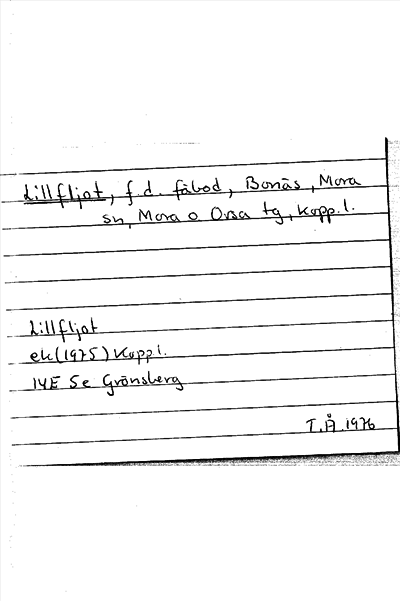 Lillfljot, f.d. fäbod, Bonäs, Mora
sn, Mora o Orsa tg, Kopp.l.
Lillfljot
ek(1975) Koppl.
14E Se Gränsberg
T.Å. 1976